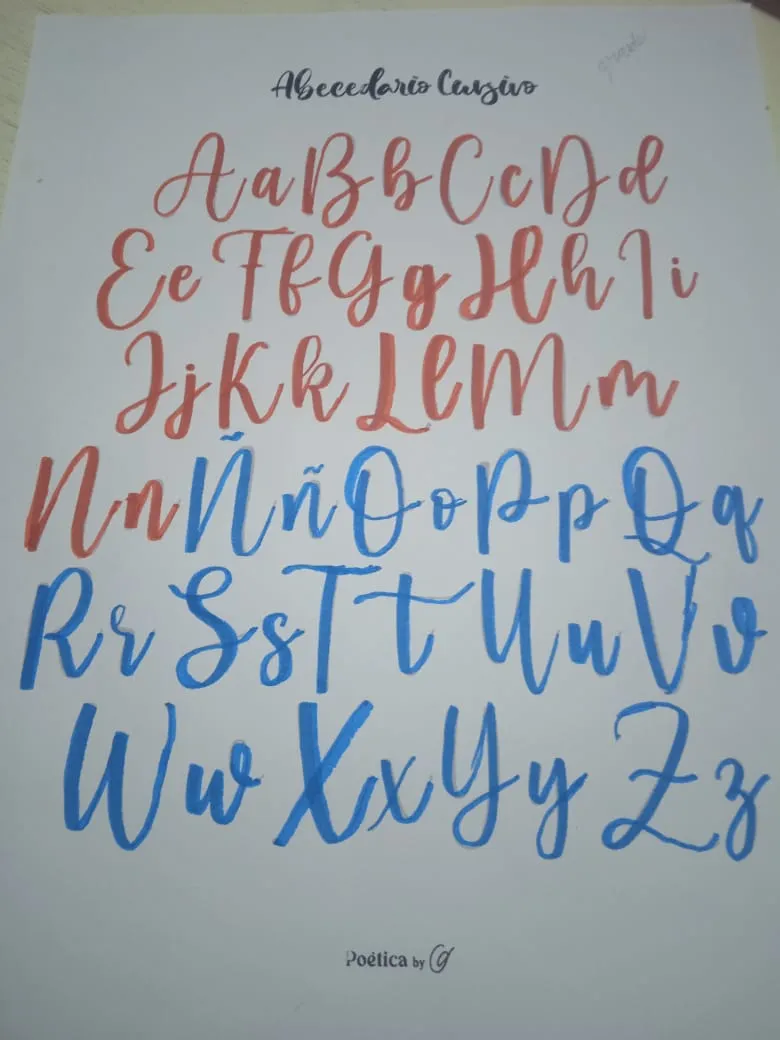 Abecedario Cursivo
grande
Aa Bb Cc Dd
Ee Ff Gg Hh Ii
Jj Kk Ll Mm
Nn Ññ Oo Pp Qq
Rr Ss Tt Uu Vv
Ww Xx Yy Zz
Poética by